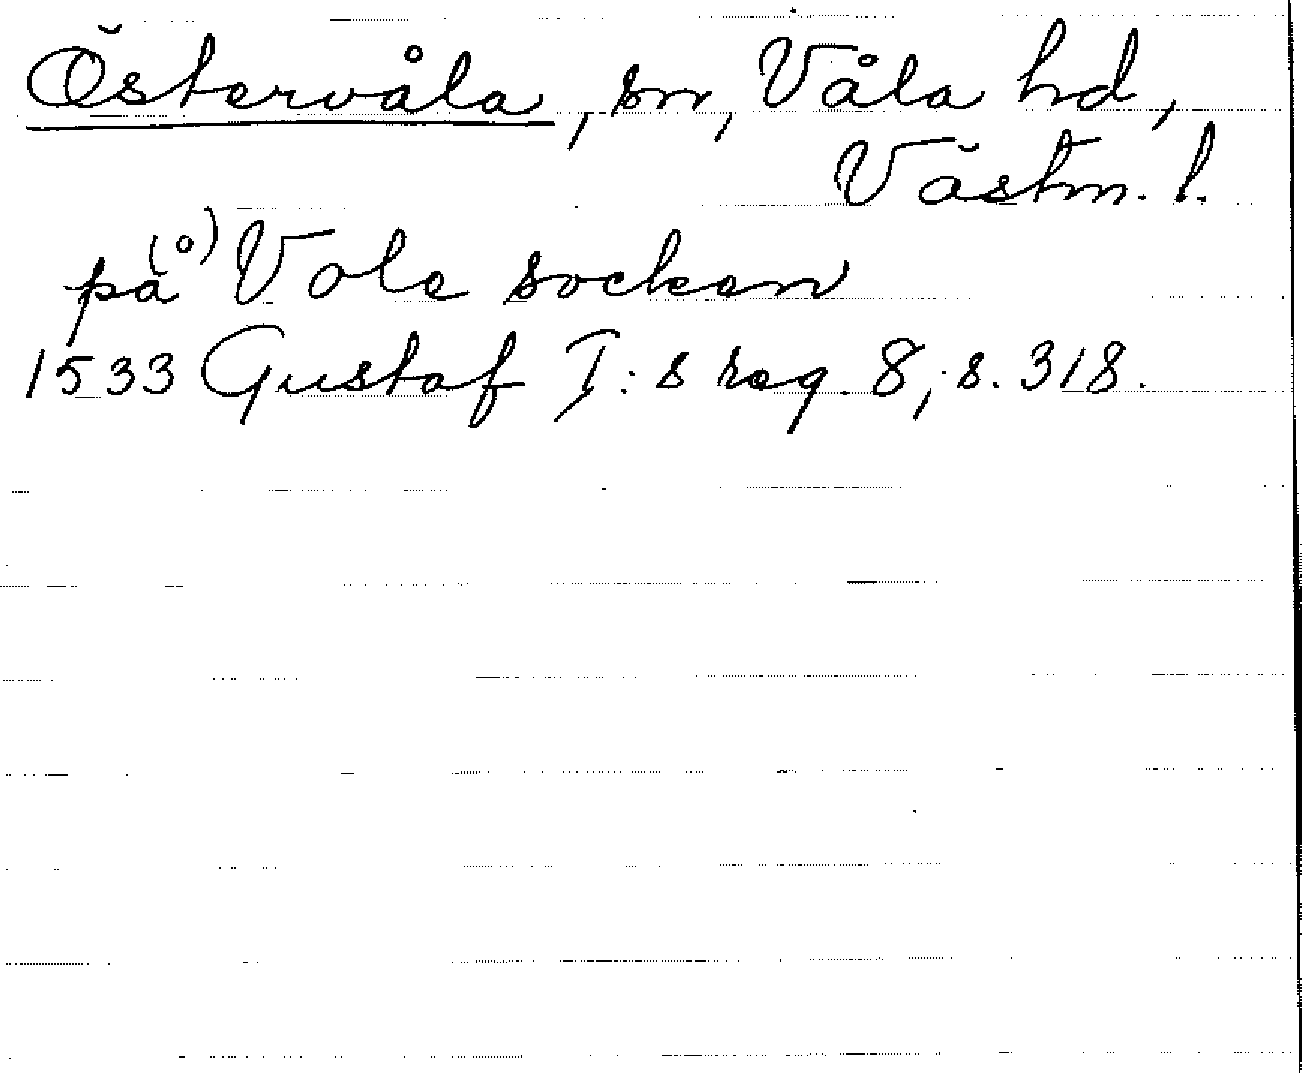 Östervåla, sn, Våla hd,
Västm. l.
på(o) Vole socken
1533 Gustaf I:s reg. 8, s. 318.